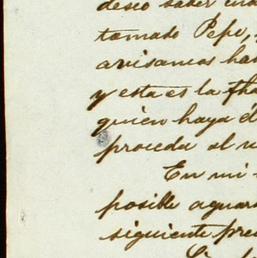 deseo saber
tomado Pepe,
avisamos has
y esta es la fha
quien haya de
proceda al r
En mi
posible aguar
siguiente pre